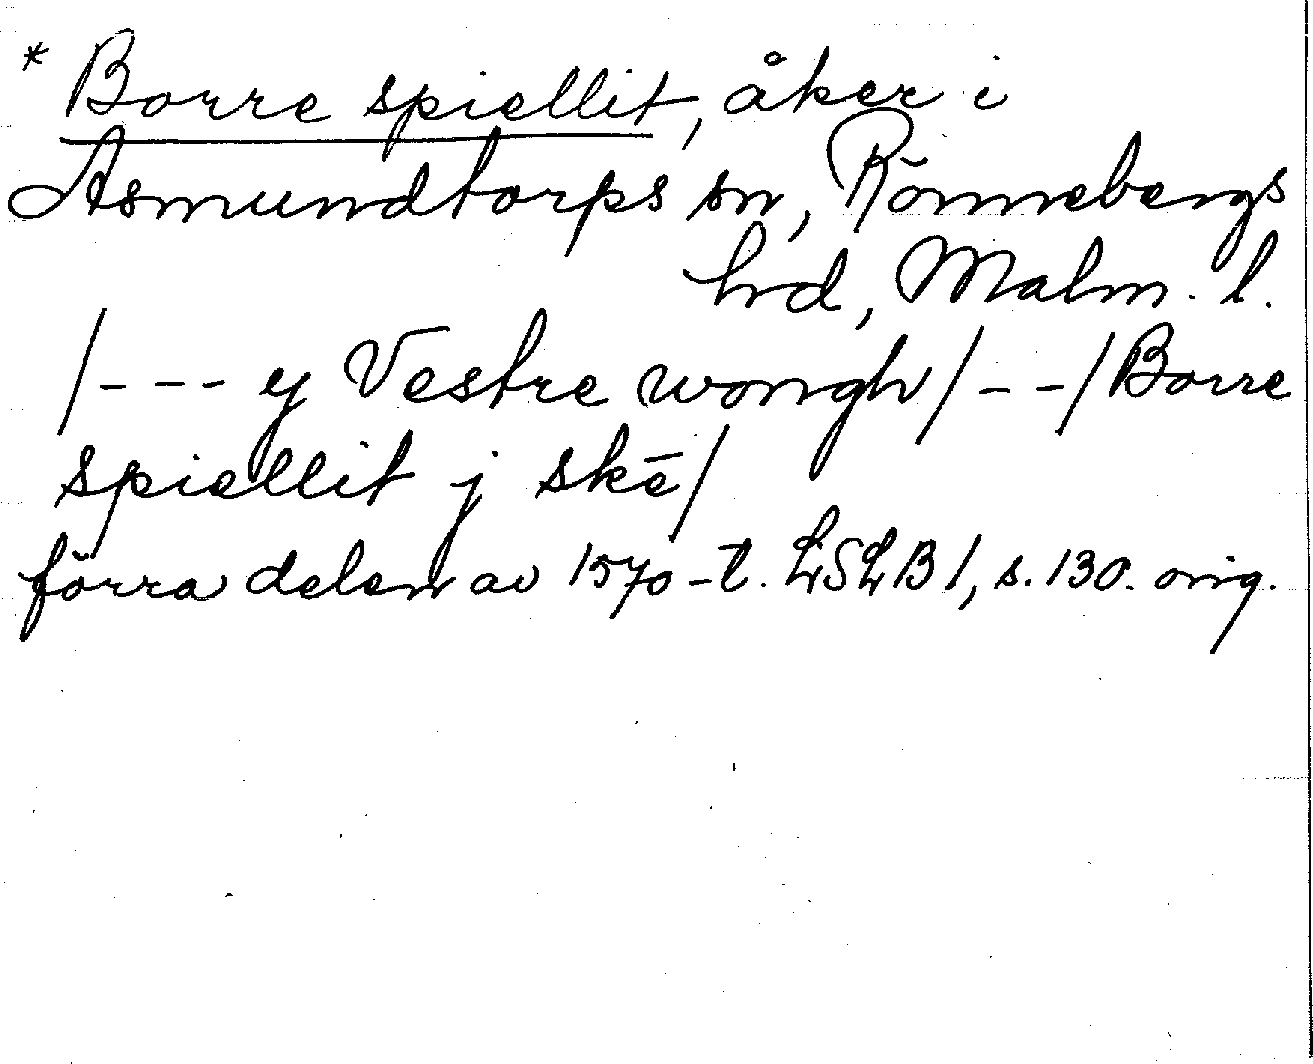 * Borre spiellit, åker i
Asmundtorps sn, Rönnebergs
hd, Malm. l.
/- - - y Vestre wongh/- -/Borre
spiellit j skē/
förra delen av 1570-t. LSLB 1, s. 130. orig.